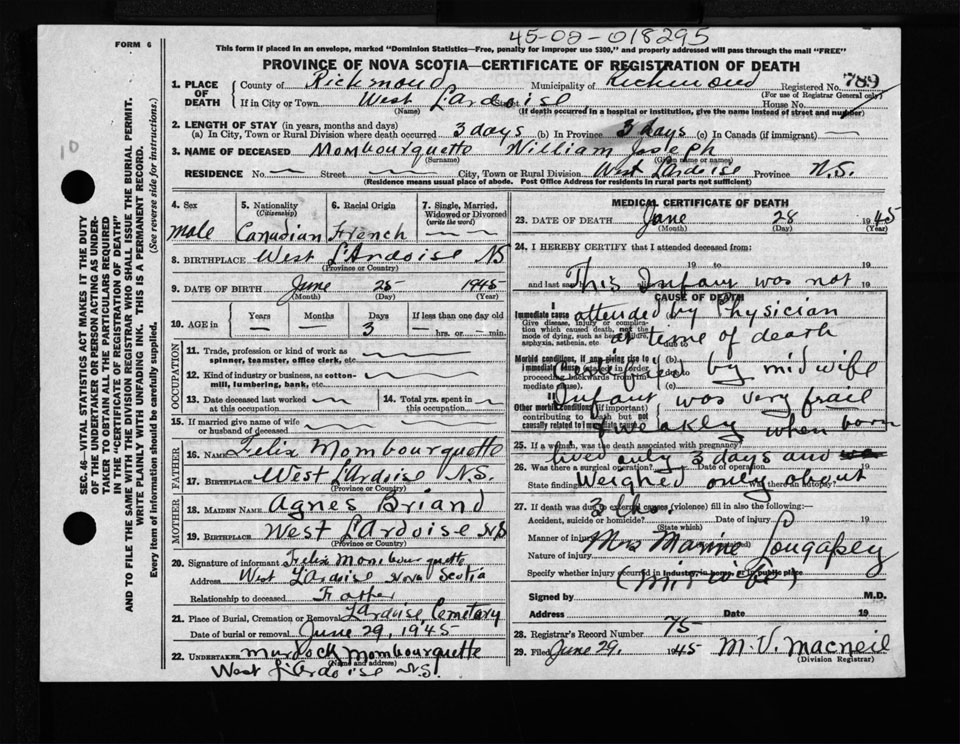 45-02-018295
FORM 6
This form if placed in an envelope, marked "Dominion Statistics—Free, penalty for improper use $300," and properly addressed will pass through the mail "FREE"
PROVINCE OF NOVA SCOTIA—CERTIFICATE OF REGISTRATION OF DEATH
1. PLACE OF DEATH County of Richmond Municipality of Richmond Registered No. 789
(For use of Registrar General only)
If in City or Town West L'Ardoise Street House No.
(Name) (If death occurred in a hospital or institution, give the name instead of street and number)
2. LENGTH OF STAY (in years, months and days)
(a) In City, Town or Rural Division where death occurred 3 days (b) In Province 3 days (c) In Canada (if immigrant) —
3. NAME OF DECEASED Mombourquette William Joseph
(Surname) (Given name or names)
RESIDENCE No. — Street — City, Town or Rural Division West L'Ardoise Province N.S.
(Residence means usual place of abode. Post Office Address for residents in rural parts not sufficient)
4. Sex male
5. Nationality (Citizenship) Canadian
6. Racial Origin French
7. Single, Married, Widowed or Divorced (write the word) —
8. BIRTHPLACE West L'Ardoise NS
(Province or Country)
9. DATE OF BIRTH June 25 1945
(Month) (Day) (Year)
10. AGE in Years — Months — Days 3 If less than one day old — hrs. or — min.
OCCUPATION
11. Trade, profession or kind of work as spinner, teamster, office clerk, etc.
12. Kind of industry or business, as cotton-mill, lumbering, bank, etc.
13. Date deceased last worked at this occupation —
14. Total yrs. spent in this occupation —
15. If married give name of wife or husband of deceased
FATHER
16. NAME Felix Mombourquette
17. BIRTHPLACE West L'Ardoise N.S.
(Province or Country)
MOTHER
18. MAIDEN NAME Agnes Briand
19. BIRTHPLACE West L'Ardoise NS
(Province or Country)
20. Signature of informant Felix Mombourquette
Address West L'Ardoise Nova Scotia
Relationship to deceased Father
21. Place of Burial, Cremation or Removal L'Ardoise Cemetary
Date of burial or removal June 29, 1945
22. UNDERTAKER Murdock Mombourquette
(Name and address)
West L'Ardoise N.S.
MEDICAL CERTIFICATE OF DEATH
23. DATE OF DEATH June 28 1945
(Month) (Day) (Year)
24. I HEREBY CERTIFY that I attended deceased from:
19 to 19
and last saw 19
This Infant was not
CAUSE OF DEATH
Immediate cause
Give disease, injury or complication which caused death, not the mode of dying, such as heart failure, asphyxia, asthenia, etc. (a)
attended by Physician
at time of death
Morbid conditions, if any, giving rise to immediate cause (stated in order proceeding backwards from immediate cause). (b) (c)
by midwife
Other morbid conditions (if important) contributing to death but not causally related to immediate cause.
Infant was very frail
& weakly when born
25. If a woman, was the death associated with pregnancy?
lived only 3 days and
26. Was there a surgical operation? Date of operation 19
State findings Was there an autopsy?
Weighed only about
27. If death was due to external causes (violence) fill in also the following:
3 lbs.
Accident, suicide or homicide? Date of injury 19
(State which)
Manner of injury
Nature of injury
Mrs
Specify whether injury occurred in industry, in home, or in public place
(midwife)
Signed by M.D.
Address Date 19
28. Registrar's Record Number 75
29. Filed June 29. 1945 M. V. MacNeil
(Division Registrar)
SEC. 46—VITAL STATISTICS ACT MAKES IT THE DUTY
OF THE UNDERTAKER OR PERSON ACTING AS UNDERTAKER TO OBTAIN ALL THE PARTICULARS REQUIRED
IN THE "CERTIFICATE OF REGISTRATION OF DEATH"
AND TO FILE THE SAME WITH THE DIVISION REGISTRAR WHO SHALL ISSUE THE BURIAL PERMIT.
WRITE PLAINLY WITH UNFADING INK. THIS IS A PERMANENT RECORD.
Every item of information should be carefully supplied. (See reverse side for instructions.)
10